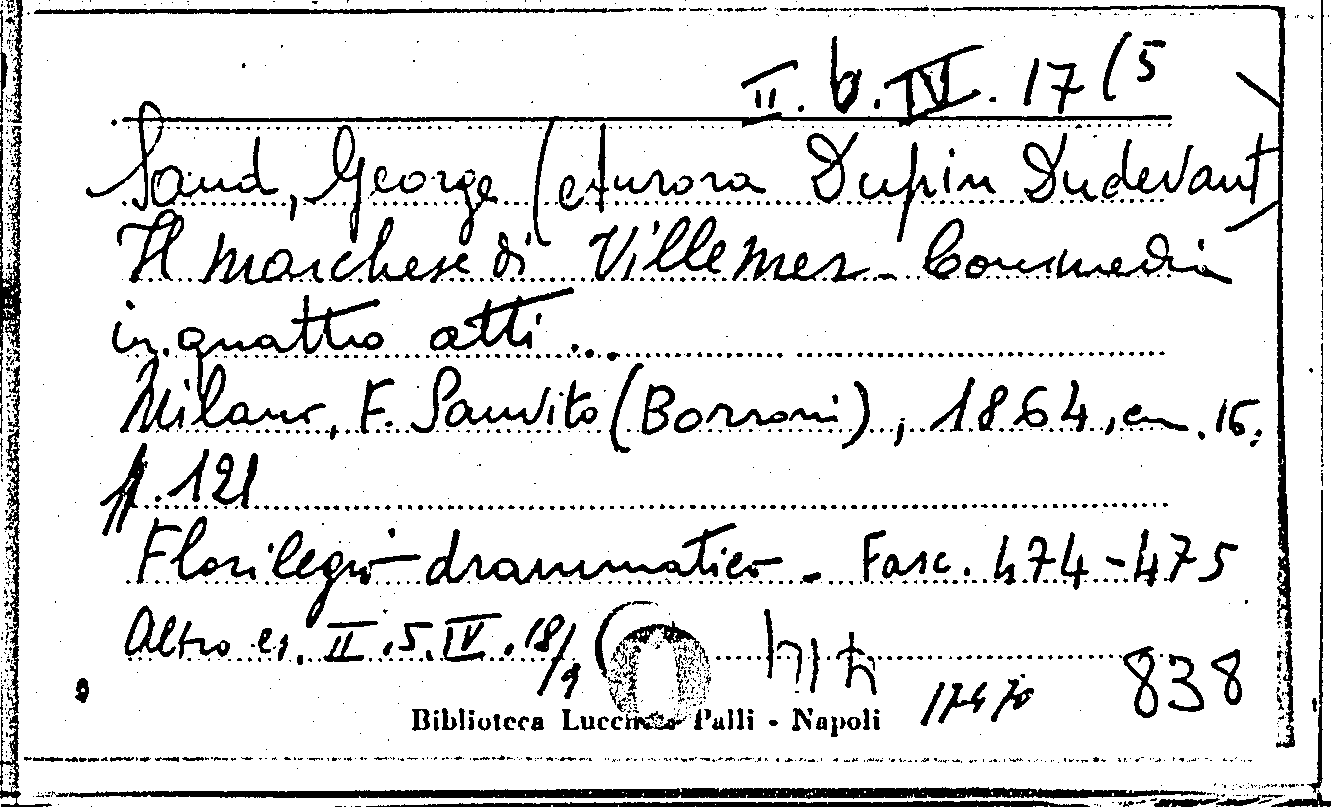 II. b. IV. 17 (5
Sand, George (Aurora Dupin Dudevant)
Il marchese di Villemer - Commedia
in quattro atti ...
Milano, F. Sanvito (Borroni), 1864, in 16,
pp. 121
Florilegio drammatico - Fasc. 474-475
Altro es. II.5.IV.18/9
17470 838
Biblioteca Lucchesi Palli - Napoli